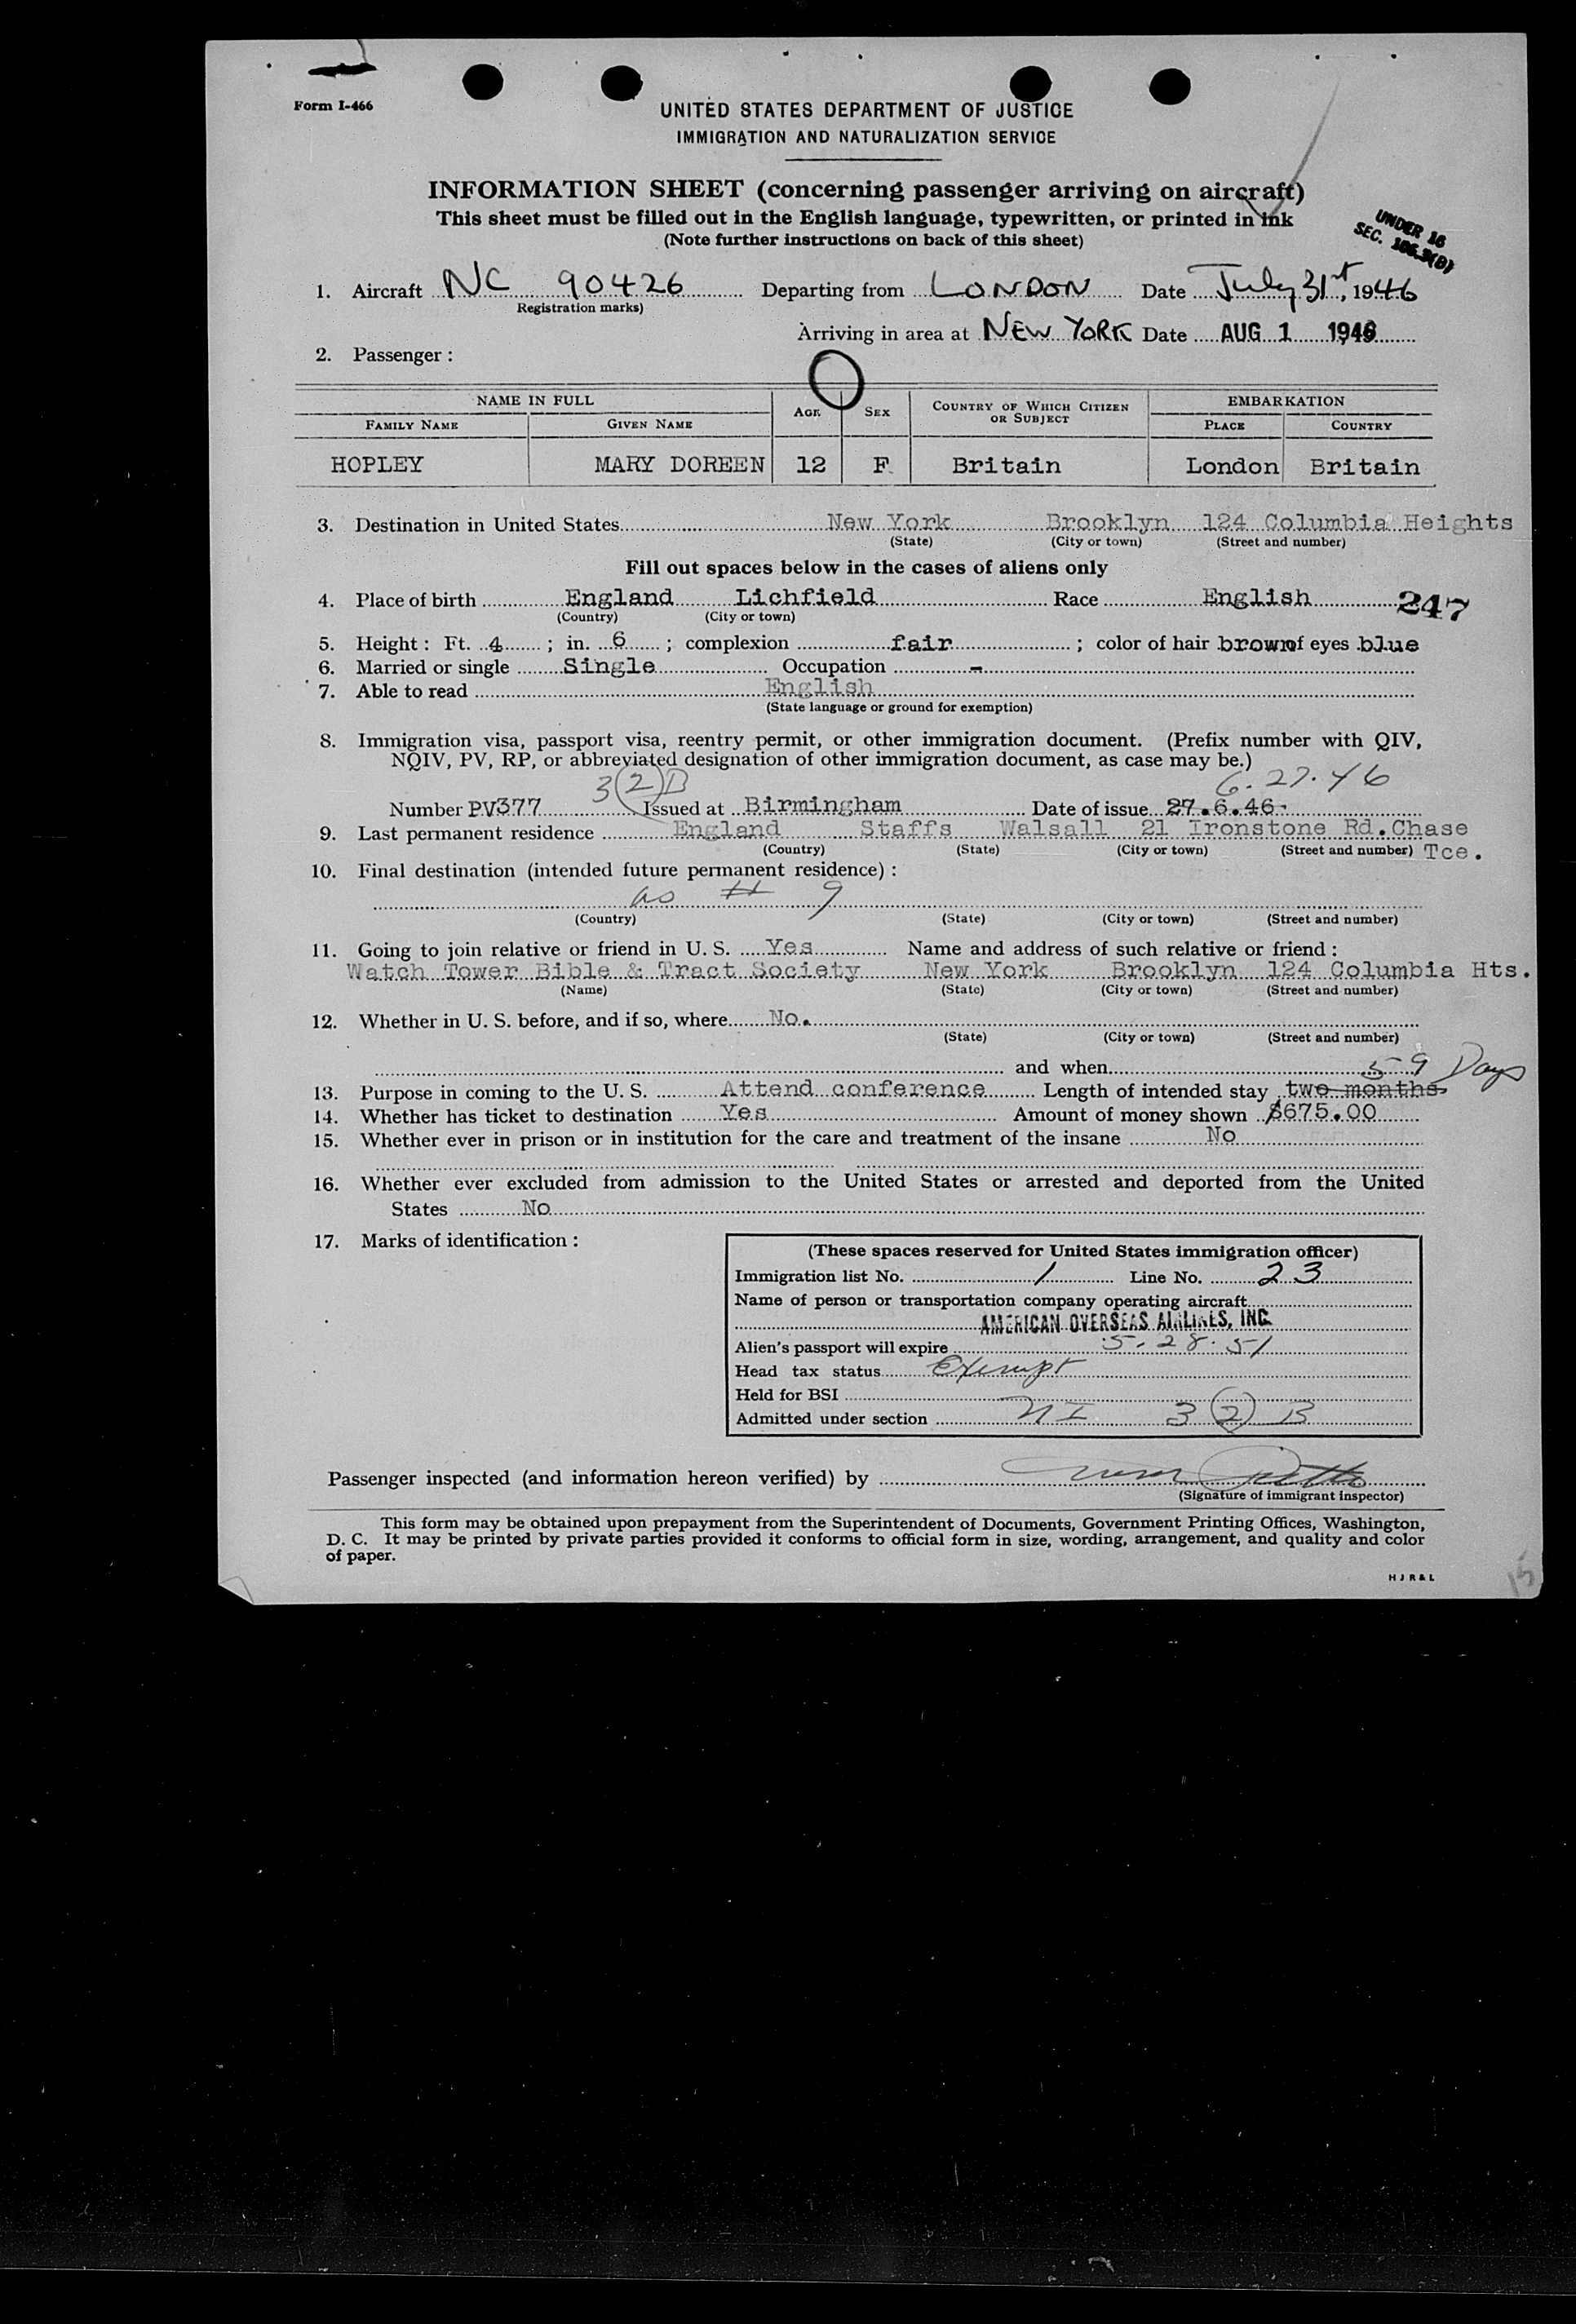 Form I-466
UNITED STATES DEPARTMENT OF JUSTICE
IMMIGRATION AND NATURALIZATION SERVICE
INFORMATION SHEET (concerning passenger arriving on aircraft)
This sheet must be filled out in the English language, typewritten, or printed in ink
(Note further instructions on back of this sheet)
UNDER 16
SEC.
1. Aircraft NC 90426 Departing from LONDON Date July 31st, 1946
Registration marks)
Arriving in area at NEW YORK Date AUG 1 1946
2. Passenger :
NAME IN FULL AGE SEX COUNTRY OF WHICH CITIZEN OR SUBJECT EMBARKATION
FAMILY NAME GIVEN NAME PLACE COUNTRY
HOPLEY MARY DOREEN 12 F Britain London Britain
3. Destination in United States New York Brooklyn 124 Columbia Heights
(State) (City or town) (Street and number)
Fill out spaces below in the cases of aliens only
4. Place of birth England Lichfield Race English 247
(Country) (City or town)
5. Height : Ft. 4 ; in. 6 ; complexion fair ; color of hair brown of eyes blue
6. Married or single Single Occupation -
7. Able to read English
(State language or ground for exemption)
8. Immigration visa, passport visa, reentry permit, or other immigration document. (Prefix number with QIV,
NQIV, PV, RP, or abbreviated designation of other immigration document, as case may be.)
3(2)B 6.27.46
Number PV377 Issued at Birmingham Date of issue 27.6.46.
9. Last permanent residence England Staffs Walsall 21 Ironstone Rd. Chase
(Country) (State) (City or town) (Street and number) Tce.
10. Final destination (intended future permanent residence) :
as # 9
(Country) (State) (City or town) (Street and number)
11. Going to join relative or friend in U. S. Yes Name and address of such relative or friend :
Watch Tower Bible & Tract Society New York Brooklyn 124 Columbia Hts.
(Name) (State) (City or town) (Street and number)
12. Whether in U. S. before, and if so, where No.
(State) (City or town) (Street and number)
and when 59 Days
13. Purpose in coming to the U. S. Attend conference Length of intended stay two months
14. Whether has ticket to destination Yes Amount of money shown $675.00
15. Whether ever in prison or in institution for the care and treatment of the insane No
16. Whether ever excluded from admission to the United States or arrested and deported from the United
States No
17. Marks of identification :
(These spaces reserved for United States immigration officer)
Immigration list No. 1 Line No. 23
Name of person or transportation company operating aircraft
AMERICAN OVERSEAS AIRLINES, INC.
Alien's passport will expire 5.28.51
Head tax status Exempt
Held for BSI
Admitted under section NI 3(2)B
Passenger inspected (and information hereon verified) by
(Signature of immigrant inspector)
This form may be obtained upon prepayment from the Superintendent of Documents, Government Printing Offices, Washington,
D. C. It may be printed by private parties provided it conforms to official form in size, wording, arrangement, and quality and color
of paper.
H J R & L
15